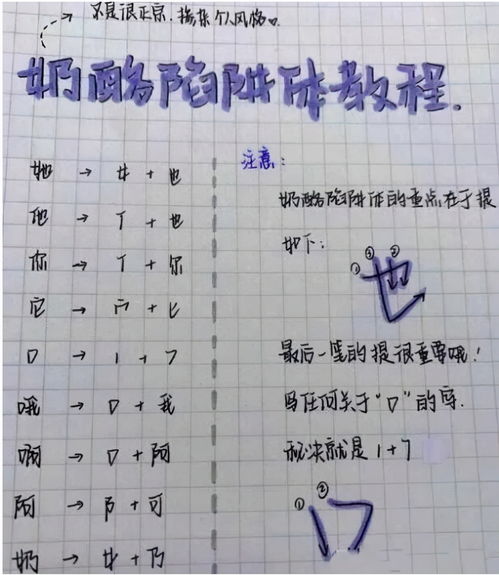 不是很正宗,掺杂个人风格。
奶酪陷阱体教程.
她 → 女 + 也
他 → 亻 + 也
你 → 亻 + 尔
它 → 宀 + 匕
口 → 1 + 7
哦 → 口 + 我
啊 → 口 + 阿
阿 → 阝 + 可
奶 → 女 + 乃
注意:
奶酪陷阱体的重点在于提
如下:
① ③ ②
也
最后一笔的提很重要哦!
写任何关于“口”的字.
秘诀就是 1 + 7
① ②
口